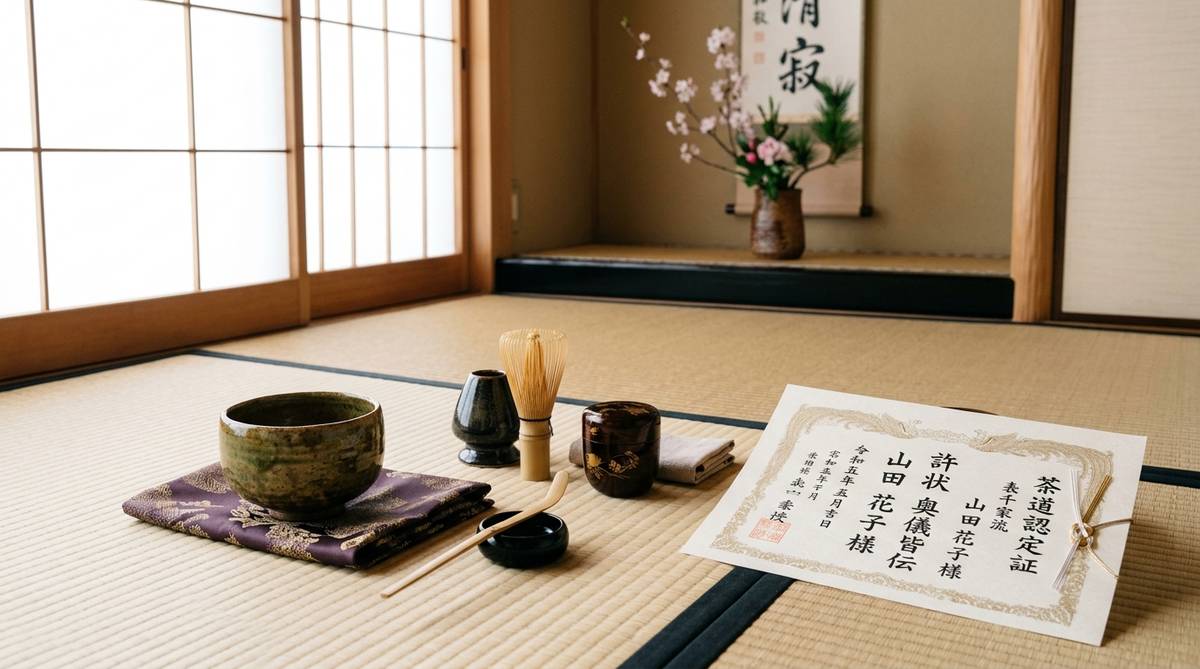 清寂
茶道認定証
表千家流
山田花子様
許状 奥儀皆伝
山田 花子様
令和五年五月吉日